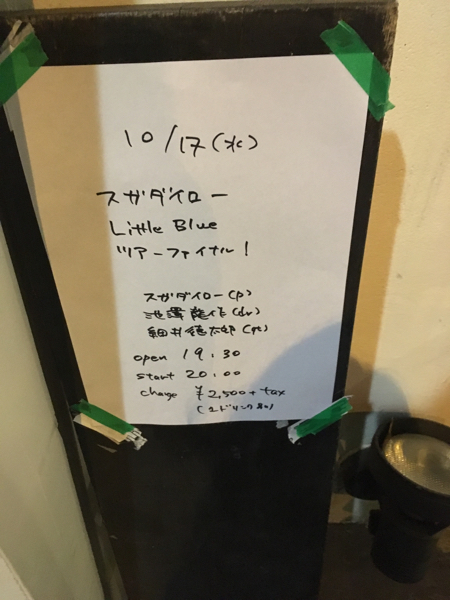 10/17(水)
スガダイロー
Little Blue
ツアーファイナル!
スガダイロー(p)
池澤龍作(dr)
細井徳太郎(gt)
open 19:30
start 20:00
charge ¥2,500+tax
(1ドリンク別)